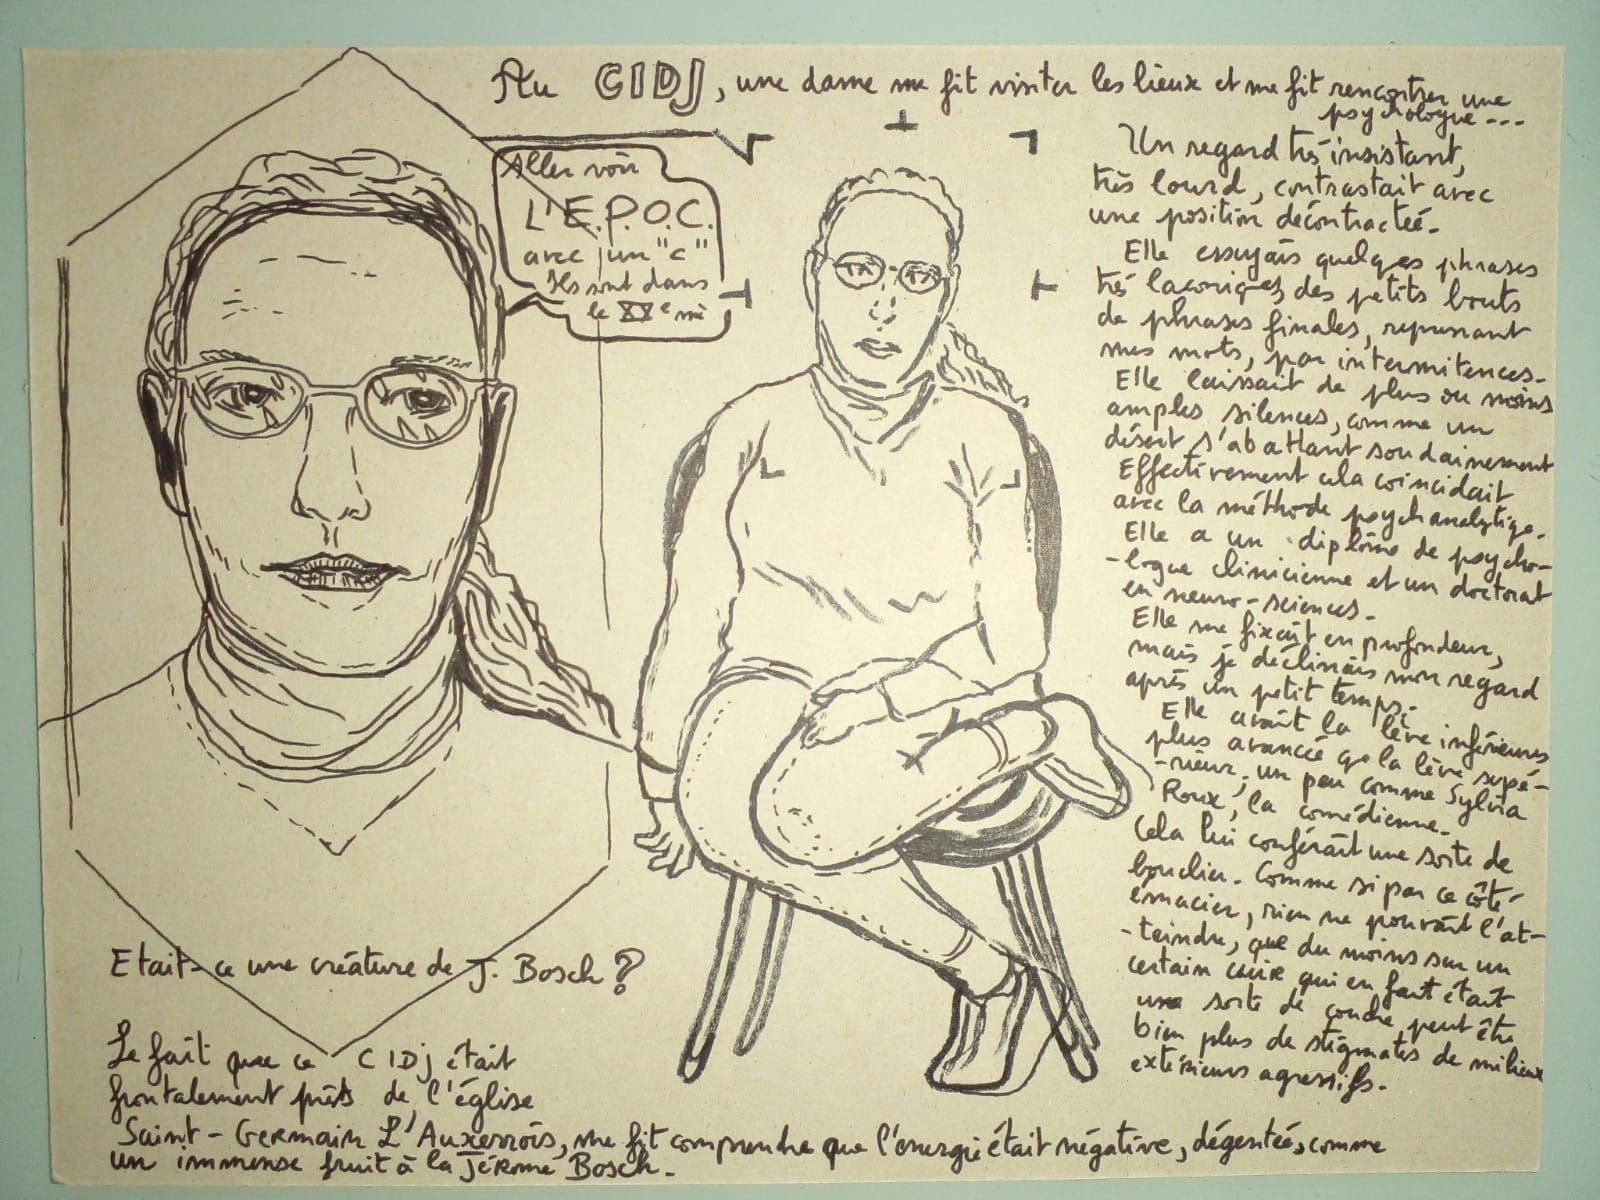 Au CIDJ, une dame me fit visiter les lieux et me fit rencontrer une
psychologue ---
Aller voir
L'E.P.O.C.
avec un "c"
Ils sont dans
le XXe mè
Un regard très insistant,
très lourd, contrastait avec
une position décontracteé.
Elle essayais quelques phrases
très laconiques, des petits bouts
de phrases finales, reprenant
mes mots, par intermitences.
Elle laissait de plus ou moins
amples silences, comme un
désert s'abattant soudainement
Effectivement cela coincidait
avec la méthode psychanalytique.
Elle a un diplôme de psycho-
-logue clinicienne et un doctorat
en neuro-sciences.
Elle me fixait en profondeur,
mais je déclinais mon regard
après un petit temps.
Elle avait la lèvre inférieures
plus avancée que la lèvre supé-
-rieur, un peu comme Sylvia
Roux, la comédienne.
Cela lui conférait une sorte de
bouclier. Comme si par ce côté
émacier, rien ne pouvait l'at-
-teindre, que du moins sur un
certain cuire qui en fait était
une sorte de couche peut être
bien plus de stigmates de milieux
extérieurs agressifs.
Etait-ce une créature de J. Bosch ?
Le fait que ce CIDJ était
frontalement près de l'église
Saint-Germain L'Auxerrois, me fit comprendre que l'énergie était négative, dégentée, comme
un immense fruit à la Jérome Bosch.